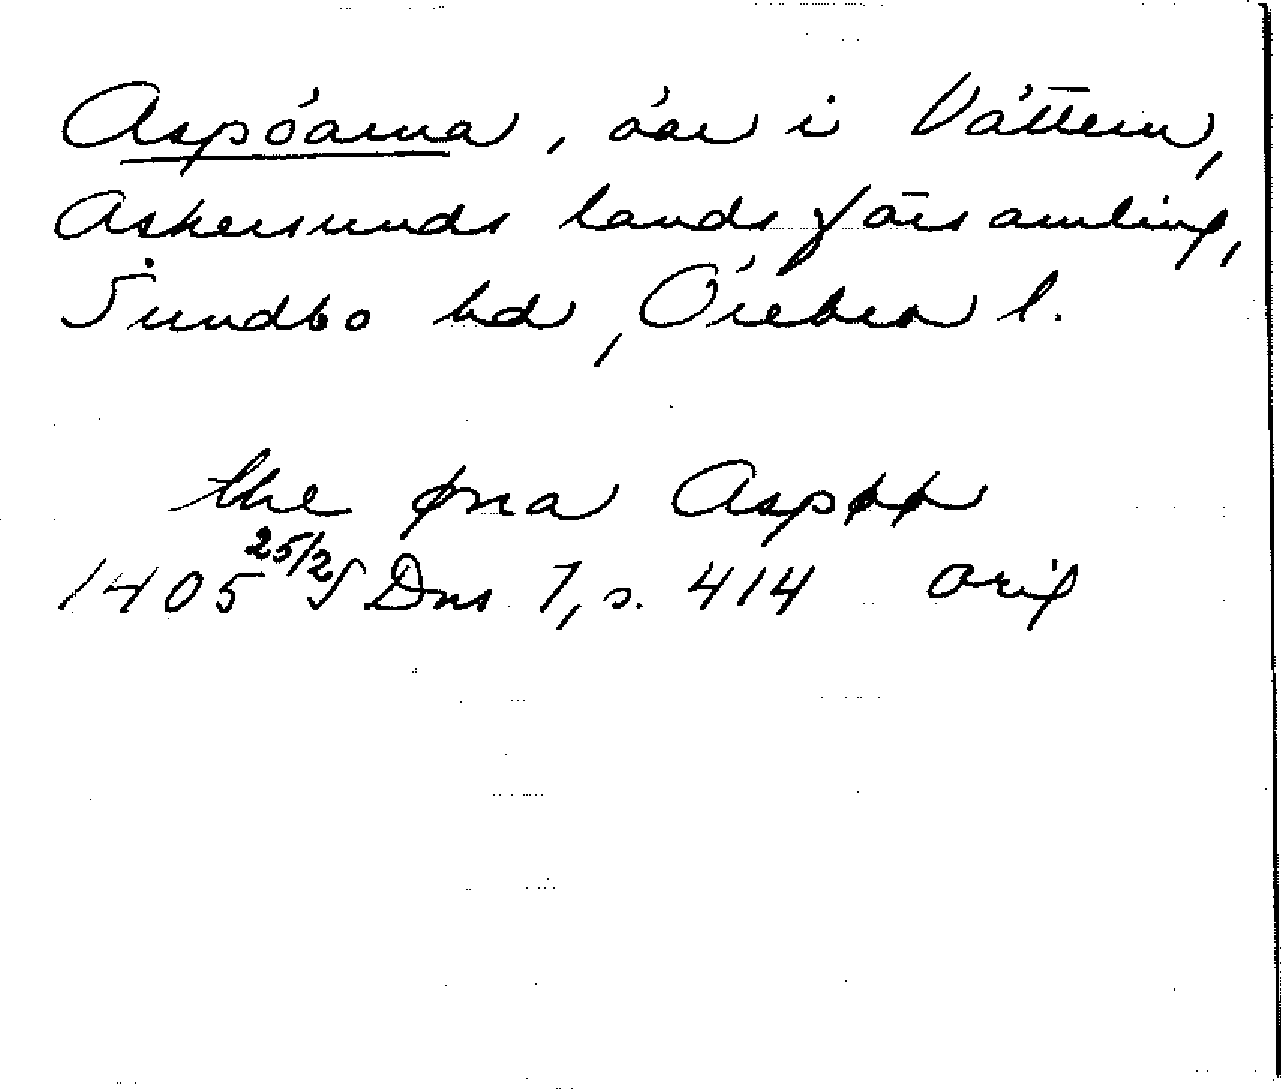 Aspöarna, öar i Vättern,
Askersunds landsförsamling,
Sundbo hd, Örebro l.
the øna Aspøø
1405 25/2 SDns 1, s. 414 orig